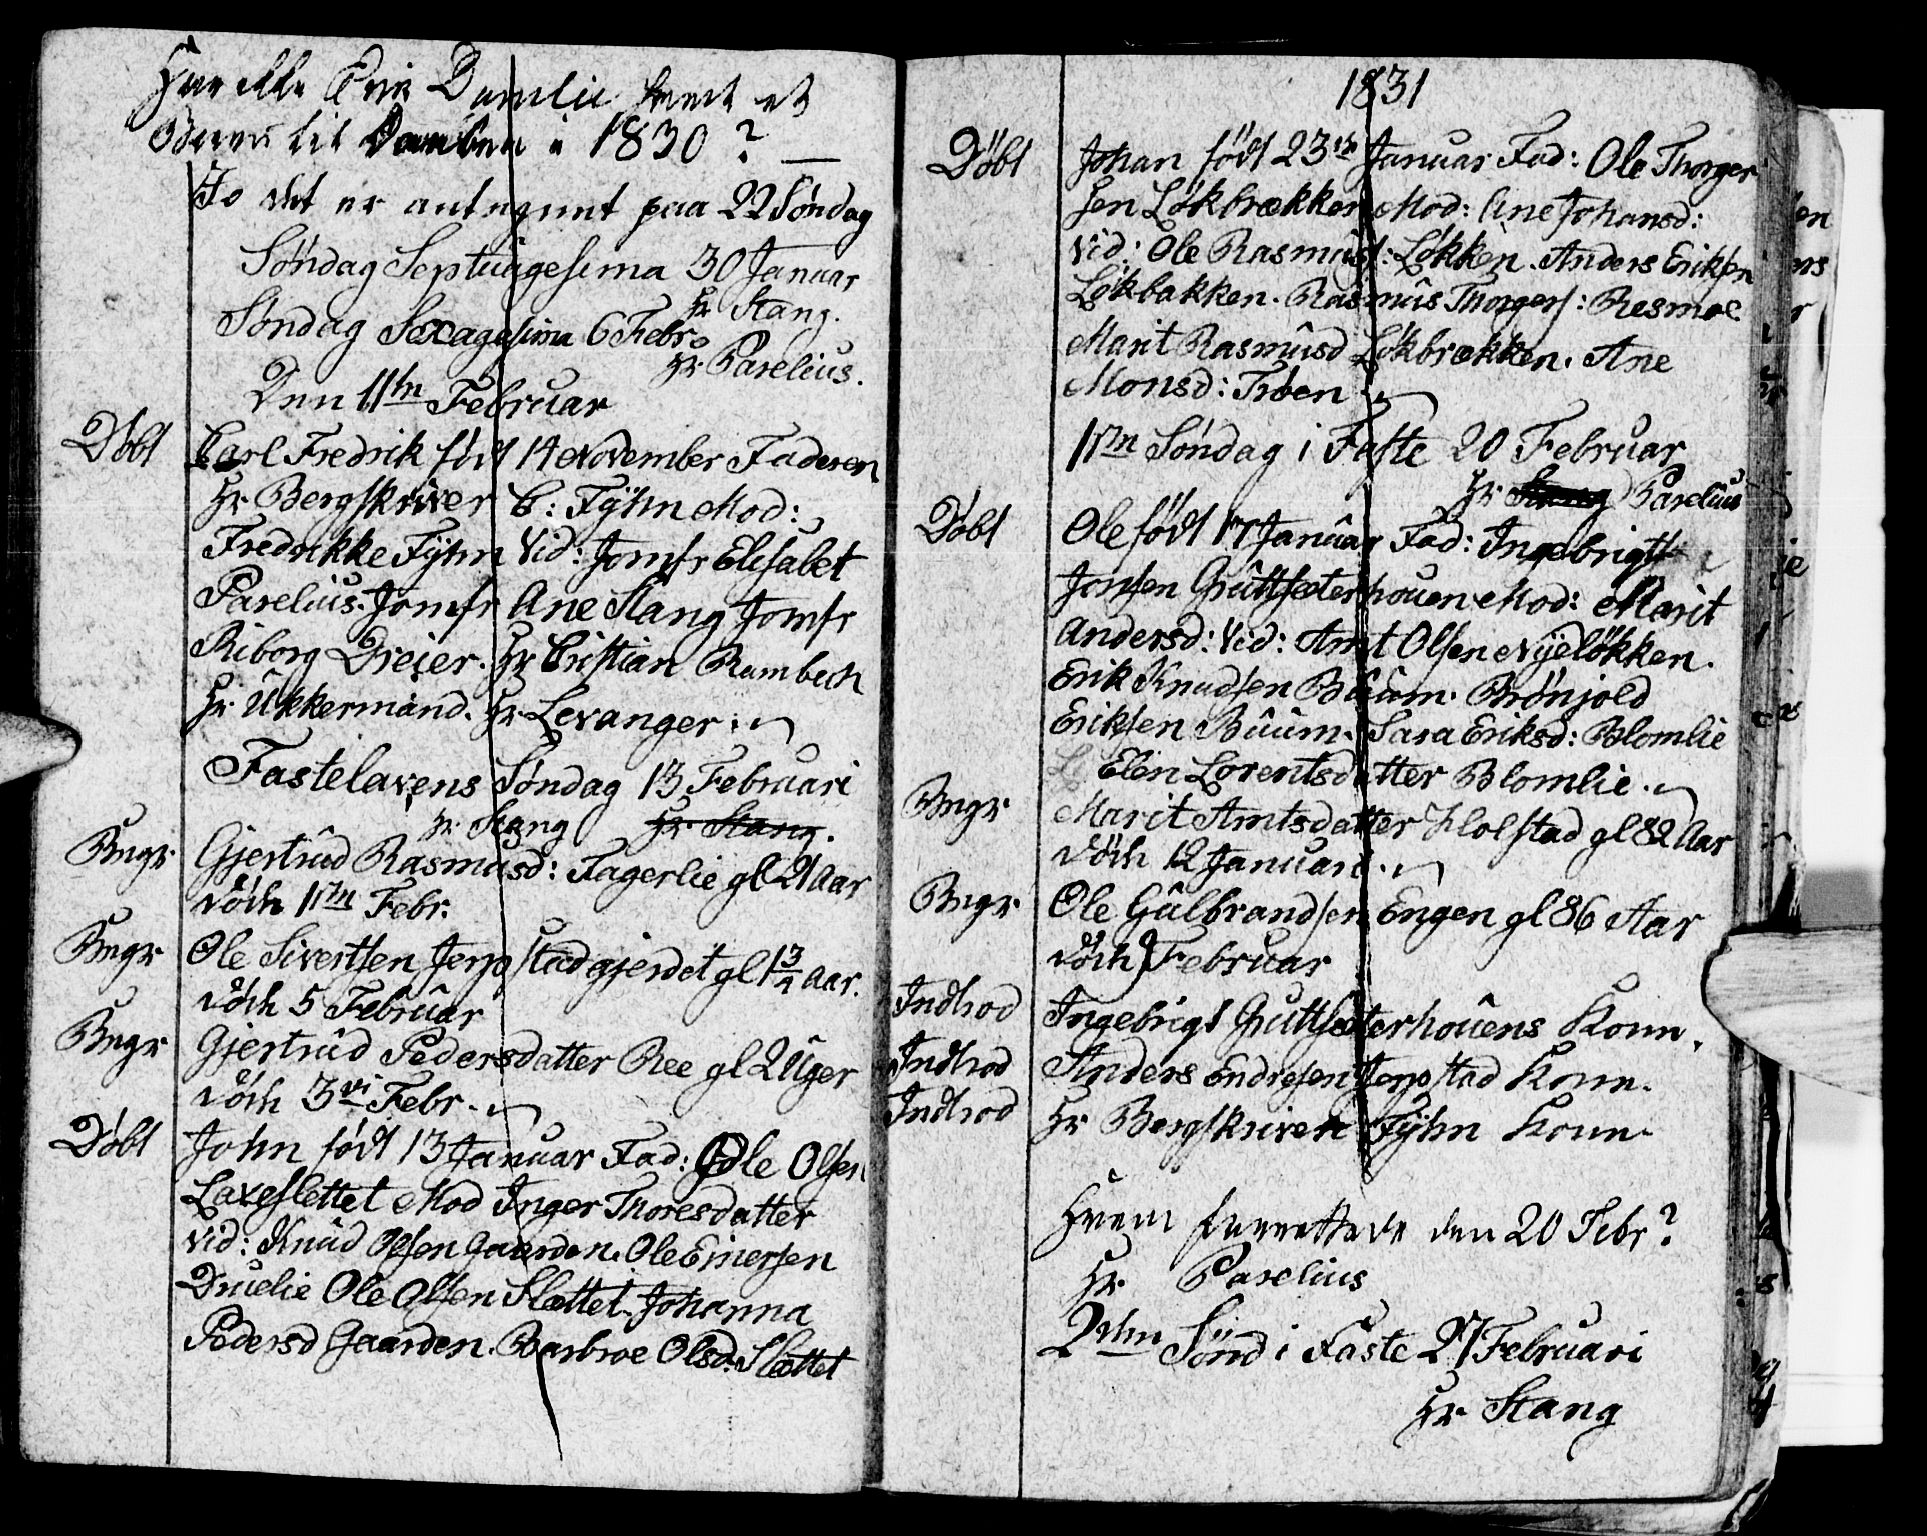 Har ikke Erik Damlie havt et
Barn til Daaben i 1830? —
Jo det er antegnnt paa 22 Söndag
Söndag Septuagesima 30 Januar
Hr Stang.
Söndag Sexagesima 6 Febr.
Hr Parelius.
Den 11te Februar
Döbt Carl Fredrik födt 14 November Faderen
Hr Bergskriver C: Fÿhn Mod:
Fredrikke Fÿhn Vid: Jomfr Elisabet
Parelius. Jomfr Ane Stang Jomfr
Riborg Dreier. Hr Cristian Rambech
Hr Ukkermand. Hr Levanger.
Fastelavens Söndag 13 Februari
Hr Stang Hr Stang.
Begr Gjertrud Rasmusd: Fagerlie gl 21 Aar
död 1ste Febr.
Begr Ole Sivertsen Jerpstadgjerdet gl 1 3/4 Aar.
död 5 Februar
Begr Gjertrud Pedersdatter Ree gl 2 Uger
död 3di Febr.
Döbt John födt 13 Januar Fad: Ole Olsen
Laxeslettet Mod Inger Thoresdatter
Vid: Knud Olsen Gaarden. Ole Einersen
Druelie Ole Olsen Slettet. Johanna
Pedersd Gaarden. Barbroe Olsd. Slettet
1831
Döbt Johan födt 23de Januar Fad: Ole Thorger
sen Lökbrækken Mod: Ane Johansd:
Vid: Ole Rasmus: Lökken. Anders Eriksen
Lökbakken. Rasmus Thorgers: Resmoe
Marit Rasmusd Lökbrækken. Ane
Monsd: Tröen
1ste Söndag i Faste 20 Februar
Hr Stang Parelius
Döbt Ole födt 17 Januar Fad: Ingebrigt
Jonsen Gruttseterhouen Mod: Marit
Andersd: Vid: Arnt Olsen Nÿelökken.
Erik Knudsen Buum. Brönjold
Eriksen Buum. Sara Eriksd: Blomlie
Elen Lorentsdatter Blomlie.
Begr Marit Arntsdatter Holstad gl 82 Aar
död 12 Januari.
Begr Ole Gulbrandsen Engen gl 86 Aar
död 9 Februar
Indtrod Ingebrigt Gruttseterhouens Kone.
Indtrod Anders Endresen Jerpstad Kone.
Indtrod Hr Bergskriver Fÿhn Kone
Hvem forrettede den 20 Febr?
Hr Parelius
2den Sönd i Faste 27 Februari
Hr Stang